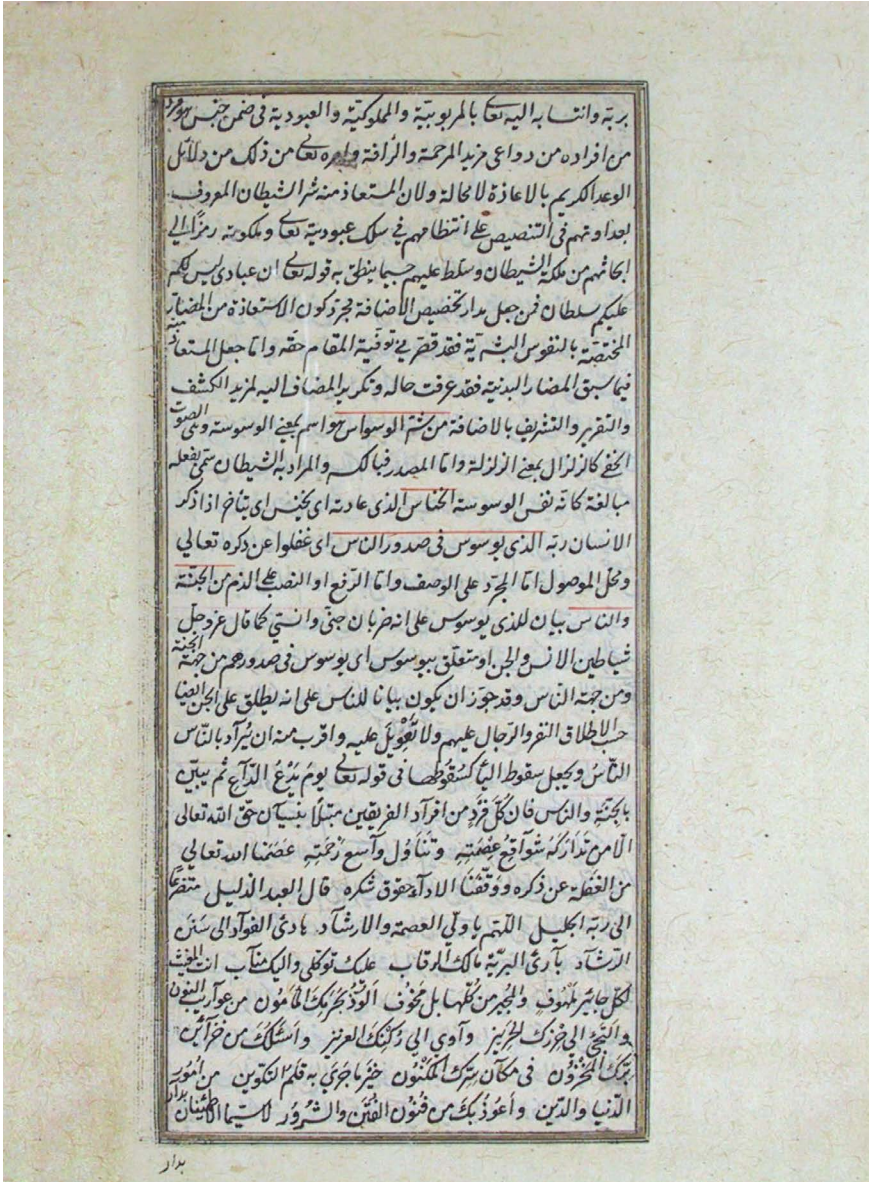 بربه وانتسابه اليه تعالى بالمربوبية والمملوكية والعبودية فى ضمن جنس هو فرد
من افراده من دواعى مزيد المرحمة والرأفة وامره تعالى من ذلك من دلائل
الوعد الكريم بالاعاذة لا محالة ولان المستعاذ منه شر الشيطان المعروف
بعداوتهم فى التنصيص على انتظامهم في سلك عبوديته تعالى وملكوته رمزًا الي
انجائهم من ملكة الشيطان وسلطه عليهم حسبما ينطق به قوله تعالى ان عبادى ليس لكم
عليكم سلطان فمن جعل مدار تخصيص الاضافة مجرد كون الاستعاذة من المضار
المختصة بالنفوس البشرية فقد قصر في توفية المقام حقه واما جعل المستعاذ منه
فيما سبق المضار البدنية فقد عرفت حاله وتكرير المضاف اليه لمزيد الكشف
والتقرير والتشريف بالاضافة من شر الوسواس هو اسم بمعنى الوسوسة وهى الصوت
الخفى كالزلزال بمعنى الزلزلة واما المصدر فبالكسر والمراد به الشيطان سمى بفعله
مبالغة كانه نفس الوسوسة الخناس الذى عادته اى يخنس اى يتأخر اذا ذكر
الانسان ربه الذى يوسوس فى صدور الناس اى غفلوا عن ذكره تعالي
ومحل الموصول اما الجر على الوصف واما الرفع او النصب على الذم من الجنة
والناس بيان للذى يوسوس على انه ضربان جنى وانسي كما قال عز وجل
شياطين الانس والجن او متعلق بيوسوس اى يوسوس فى صدورهم من جهة الجنة
ومن جهة الناس وقد جوز ان يكون بيانا للناس على انه يطلق على الجن ايضا
حسب الاطلاق النفر والرجال عليهم ولا تعويل عليه واقرب منه ان يُرَاد بالنّاس
النّاسُ ويجعل سقوط اليأ كسُقُوطها فى قوله تعالى يومَ يَدْعُ الدّاعِ ثم يبيّن
بالجنّةِ والناس فان كُلَّ فَرْدٍ من افرآد الفريقين مبتلًا بنسيآن حقّ الله تعالى
الّا من تَدَارَكهُ شوافعُ عِصْمَتِهِ وتَنَاوُل وآسع رَحْمَتِهِ عصَمَنا الله تعالي
من الغفلة عن ذكره ووَفّقَنَا الادآء حقوق شكره قال العبد الذليل متضرعًا
الى ربّه الجليل اللّهم ياوليّ العصمة والارشآد يادىَ الغوآد الى سَنَن
الرّشآد يآرئ البريّة مالك الرقاب عليك توكلي واليك منآب انت المغيث
لكل جايرٍ ملهُوفٍ والمُجير من كُلّها بل مَخُوف اَلُوذُ بحَرَمِكَ المأمُون من غوآرب المنون
والتجئُ الي حِرْزك الحَرِيز وآوى الي رُكْنِكَ العزيز واَسْئَلُكَ من خزآئن
بِرّكَ المَخْزُون فى مكآن سِرّكَ المَكْنُون خيَر ماجَرَي به قلَم التكوين من اُمُور
الدّنيا والدّين واَعُوذُ بكَ من فنُون الفِتَن والشُرُور لا سيّما الاطمئنان بدار
بدار